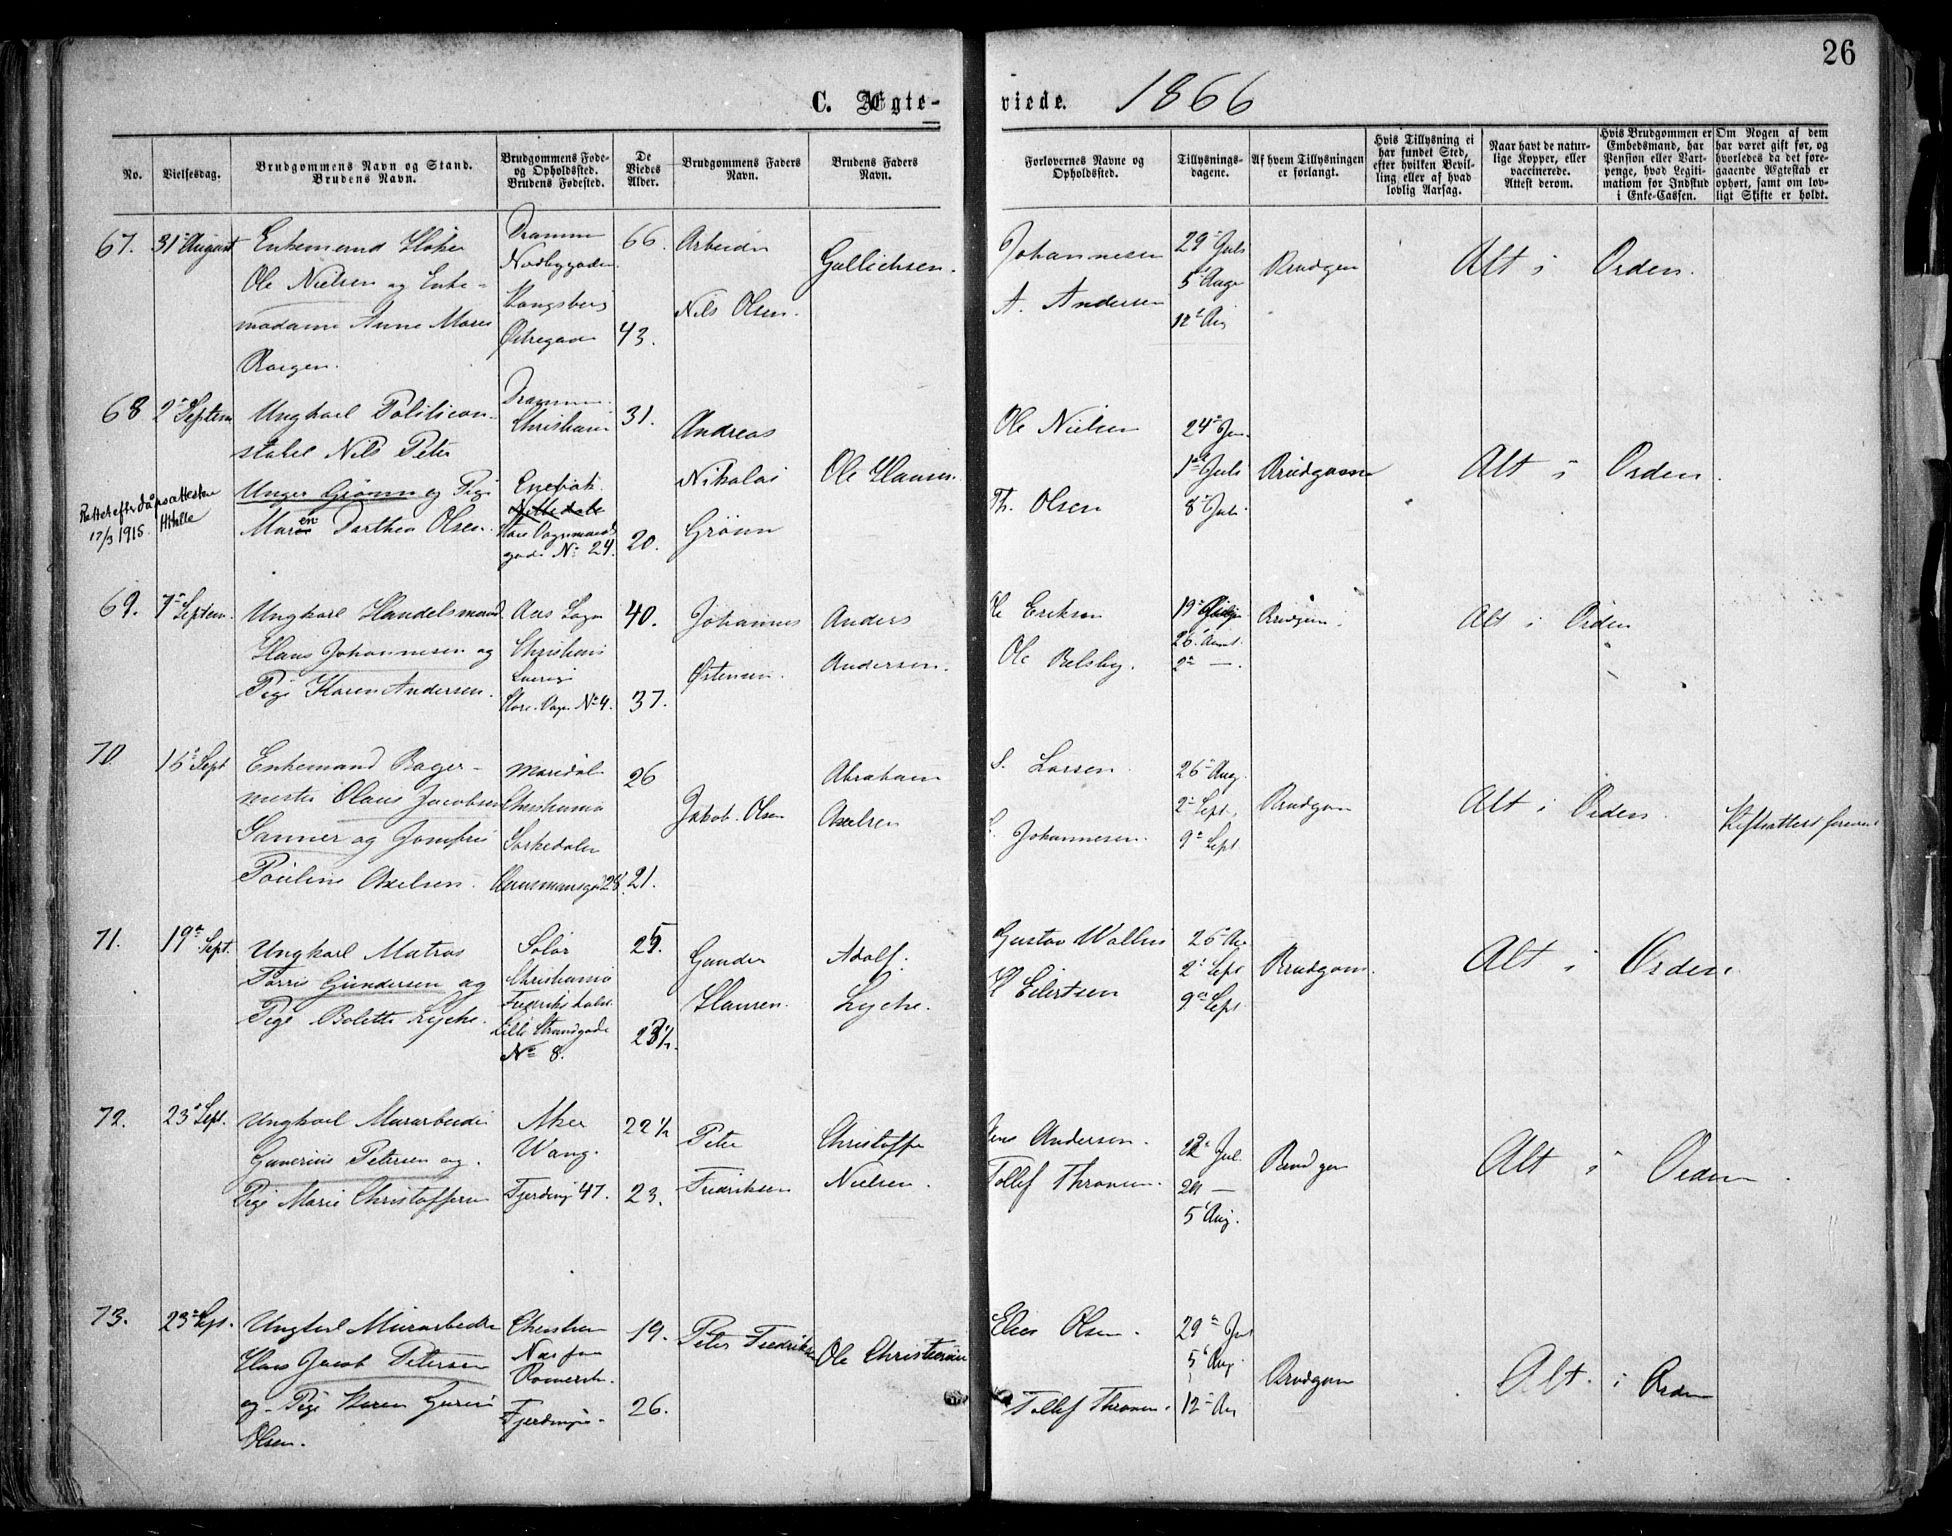 26
C. Ægte-
viede. 1866
No.
Vielsesdag.
Brudgommens Navn og Stand.
Brudens Navn.
Brudgommens Føde-
og Opholdssted.
Brudens Fødested.
De
Viedes
Alder.
Brudgommens Faders
Navn.
Brudens Faders
Navn.
Forlovernes Navne og
Opholdssted.
Tillysnings-
dagene.
Af hvem Tillysningen
er forlangt.
Hvis Tillysning ei
har fundet Sted,
efter hvilken Bevil-
ling eller af hvad
lovlig Aarsag.
Naar havt de natur-
lige Kopper, eller
vaccinerede.
Attest derom.
Hvis Brudgommen er
Embedsmand, har
Pension eller Vart-
penge, hvad Legiti-
mation for Indskud
i Enke-Cassen.
Om Nogen af dem
har været gift før, og
hvorledes da det fore-
gaaende Ægteskab er
ophørt, samt om lov-
ligt Skifte er holdt.
67.
31 August
Enkemand
Ole Nielsen og Enke-
madame Anne Marie
66.
43.
Nils Olsen.
Johannesen
A. Andersen
29 Juli
5 Aug
12 Aug
Brudgom
Alt i Orden.
68
2 Septem
Ungkarl Politicon-
stabel Nils Peter
Unger Grønn og Pige
Maren Dorthea Olsen.
Rettet efter dåpsattester
17/3 1915.
Christiania
No 24.
31.
20.
Andreas
Nikolai
Grønn
Ole Hansen.
Ole Nielsen
Th. Olsen
24 Jun
1 Juli
8 Juli
Brudgommen
Alt i Orden
69.
7 Septem.
Ungkarl Handelsmand
Hans Johannesen og
Pige Karen Andersen.
Aas Sogn
Christiania
Sverige
Store Vogn. No 4.
40.
37.
Johannes
Østensen
Anders
Andersen.
Ole Eriksen
Ole Belsby.
19
26
2 —.
Brudgom
Alt i Orden
70
16 Sept
Enkemand Bager-
mester Olaus Jacobsen
Sanner og Jomfru
Pauline Axelsen.
Maridalen
Christiania
Sørkedalen
Hausmansgd 28.
26
21.
Jakob Olsen
Abraham
Axelsen
S. Larsen.
Johannesen.
26 Aug.
2 Sept.
9 Sept
Brudgom
Alt i Orden.
Skifteattest foreviist
71.
19 Sept.
Ungkarl Matros
Torris Gundersen og
Pige Bolette Lyche.
Solør
Christiania
Fredrikshald
Lille Strandgade
No 8.
25.
23½.
Gunder
Hansen.
Adolf.
Lyche.
Gustav Wallin
H Eilertsen
26 Au
2 Sept
9 Sept
Brudgom.
Alt i Orden
72.
23 Sept.
Ungkarl Murarbeider
Gunerius Petersen og
Pige Marie Christoffersen
Aker
Wang.
Fjerdingn 47.
22½
23.
Peter
Fredriksen
Christoffer
Nielsen.
Jens Andersen.
Tollef Thronsen.
22 Jul.
29 —
5 Aug.
Brudgom
Alt i Orden.
73.
23 Sept.
Ungkarl Murarbeider
Hans Jacob Petersen
og Pige Karen Gurine
Olsen.
19.
26.
Peter Fredriksen
Ole Christiansen
Elias Olsen.
Tollef Thronsen.
29 Jul
5 Aug.
12 Aug
Brudgom
Alt i Orden